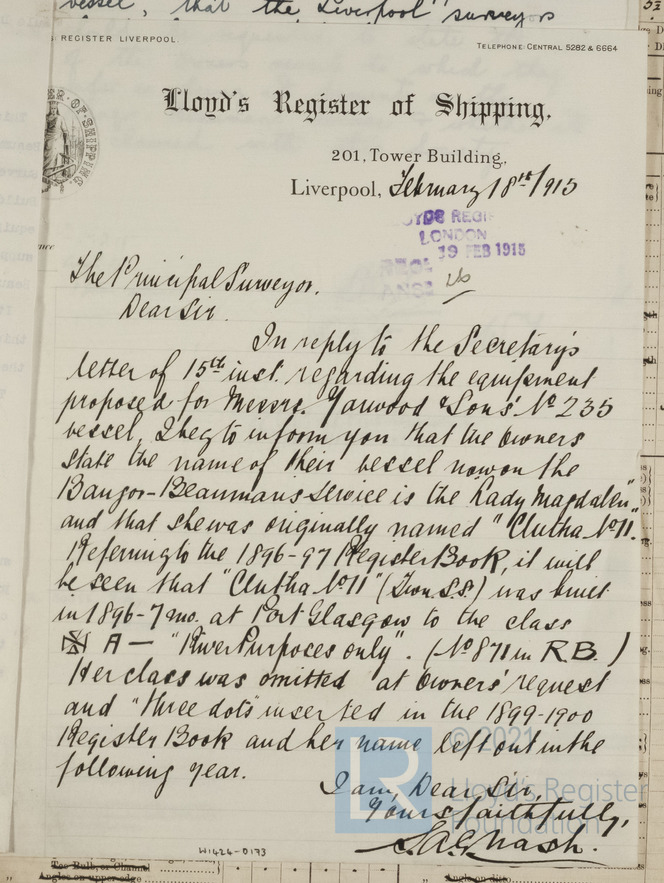 vessel, that the Liverpool surveyors
REGISTER LIVERPOOL.
TELEPHONE: CENTRAL 5282 & 6664
OF·SHIPPING
Lloyd's Register of Shipping,
201, Tower Building,
Liverpool, February 18th/1915
LONDON
19 FEB 1915
The Principal Surveyor.
Dear Sir.
In reply to the Secretary's
letter of 15th inst. regarding the equipment
proposed for Messrs. Yarwood & Sons' No 235
vessel, I beg to inform you that the Owners
state the name of their vessel now on the
Bangor-Beaumaris service is the "Lady Magdalen"
and that she was originally named "Clutha No 11.
Referring to the 1896-97 Register Book, it will
be seen that "Clutha No 11" (Iron S.S.) was built
in 1896-7mo. at Port Glasgow to the class
A — "River Purposes only". (No 871 in R.B.)
Her class was omitted at Owners' request
and "three dots" inserted in the 1899-1900
Register Book and her name left out in the
following year.
I am, Dear Sir,
Yours faithfully,
W1424-0173
© 2021
Lloyd's Register
Foundation
LR
Angles on upper edge
Angles on ditto